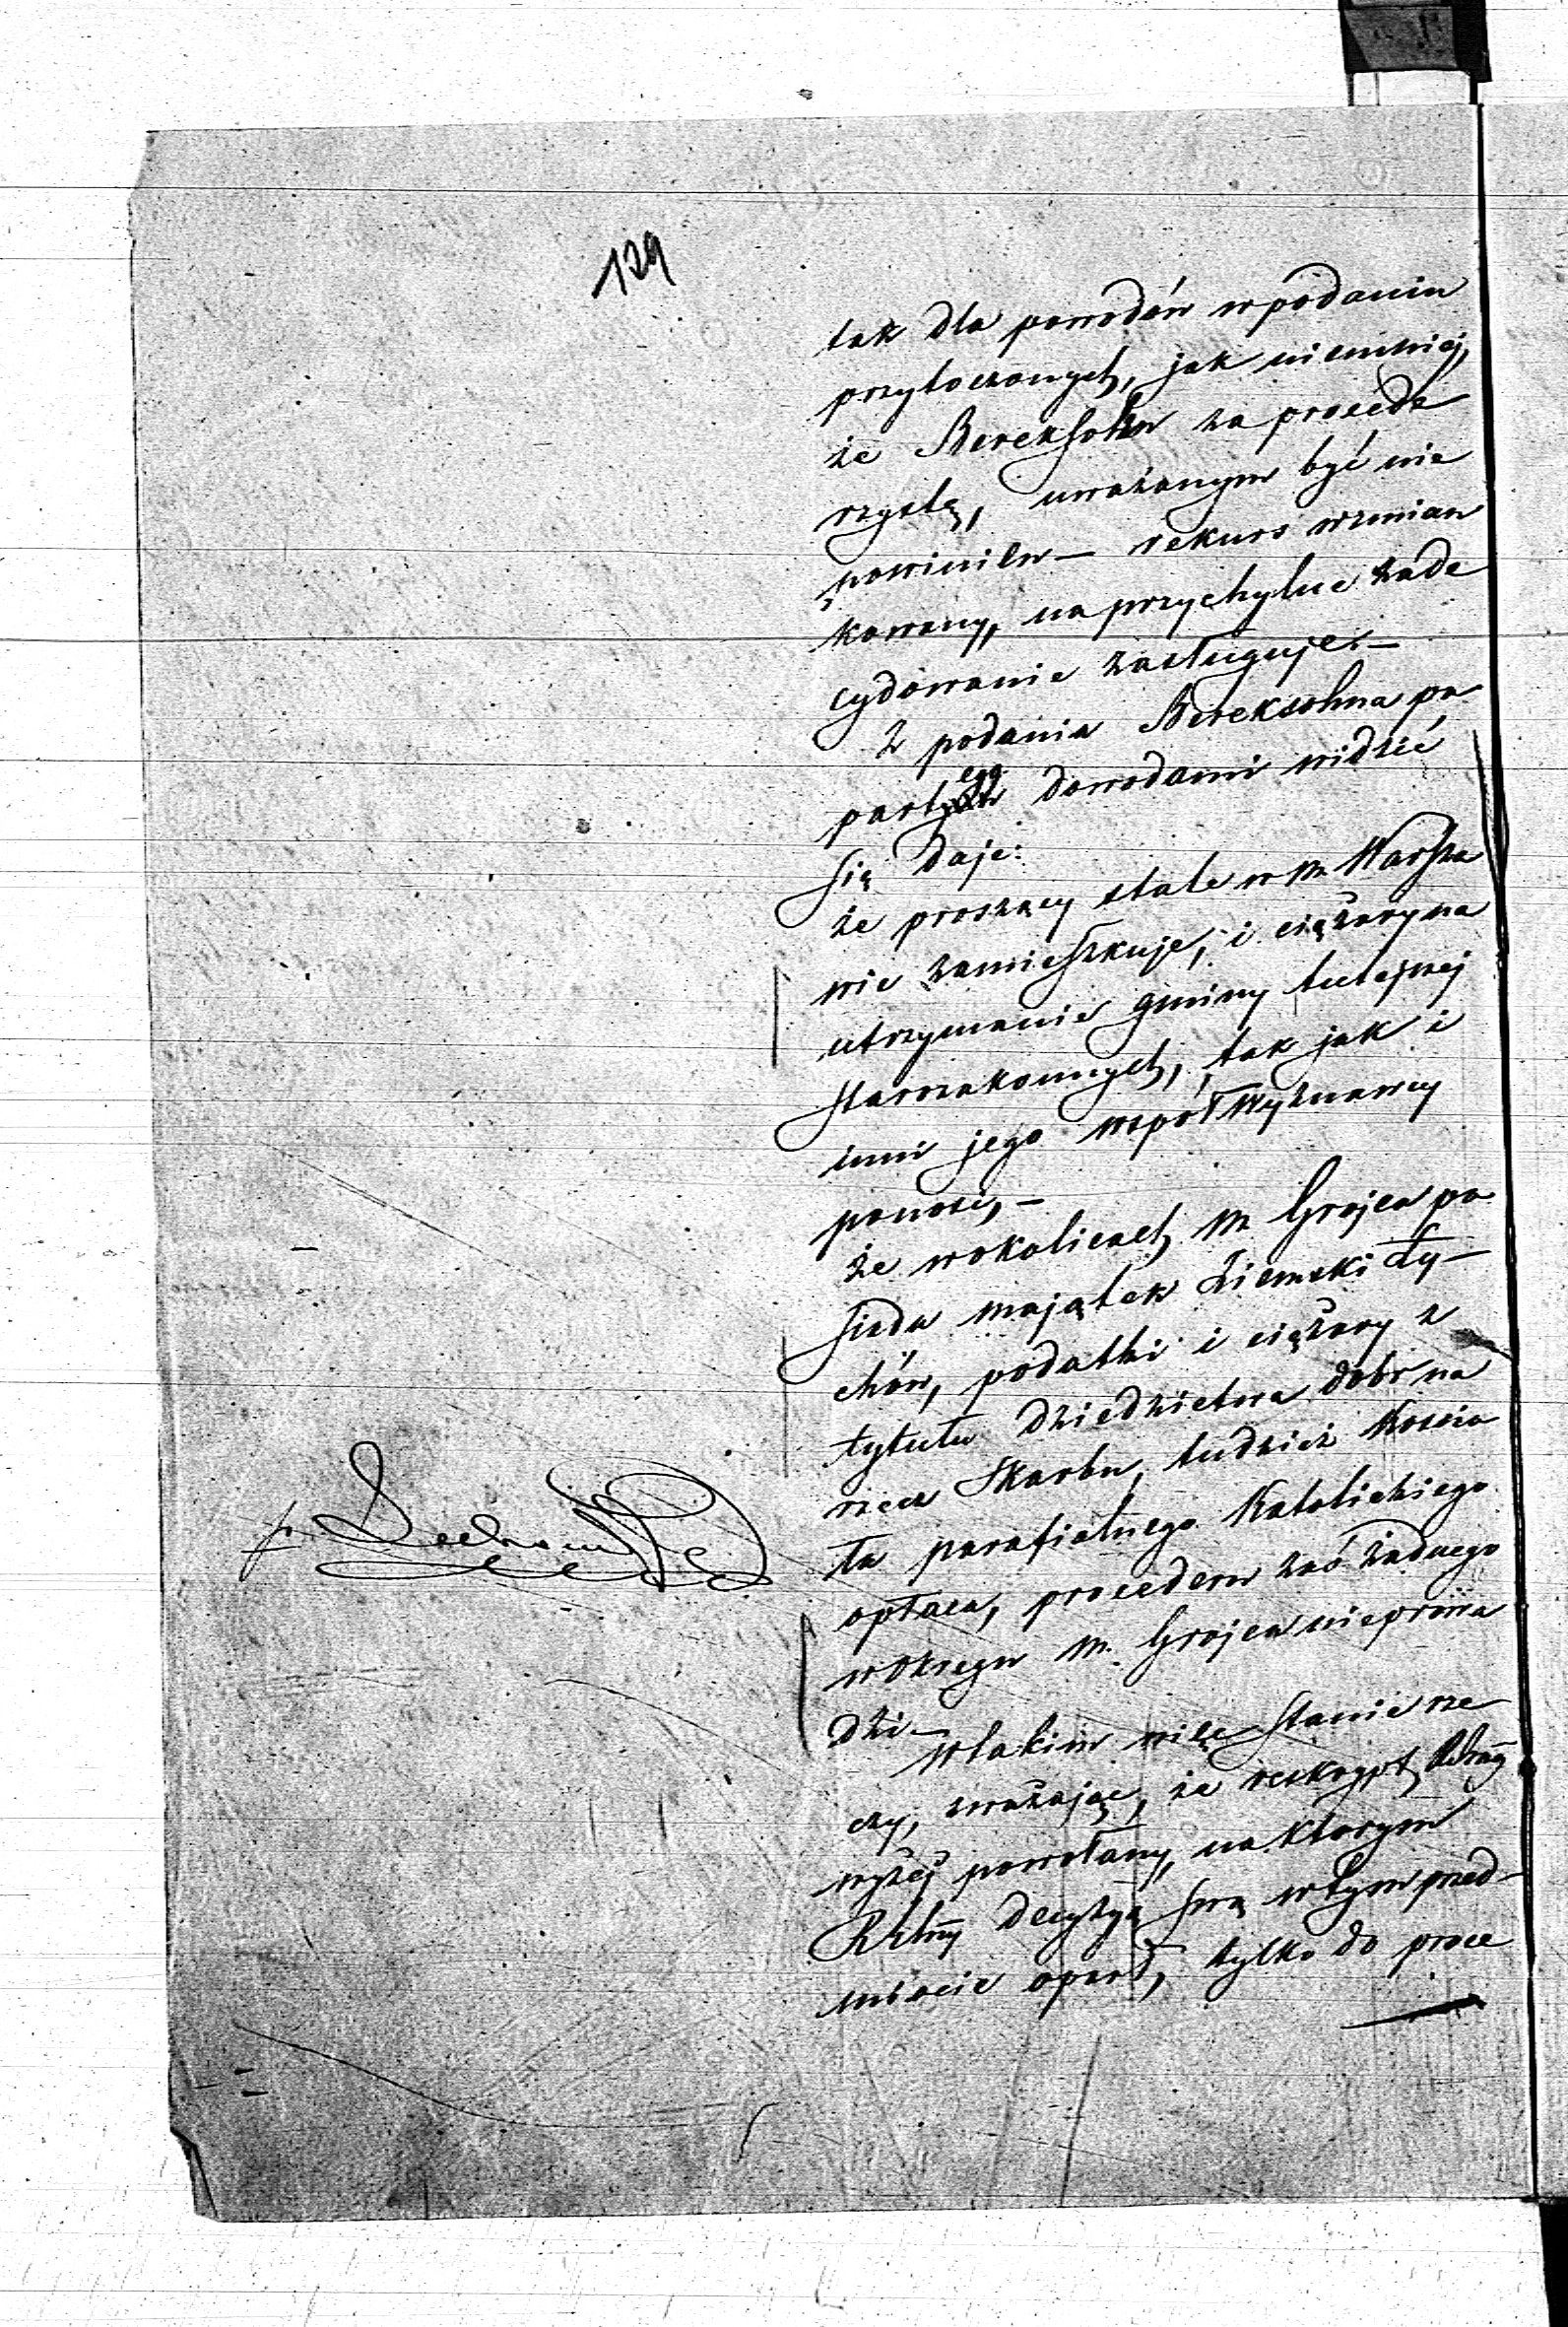 129
tak dla powodów w podaniu
przytoczonych, jak niemniej,
że Bereksohn za procede
rzystę, uważanym być nie
powinien — rekurs wzmian
kowany, na przychylne zade
cydowanie zasługuje. —
Z podania Bereksohna po
partego dowodami widzieć
się daje:
że proszący stale w m. Warsza
wie zamieszkuje, i ciężary na
utrzymanie gminy tutejszej
starozakonnych, tak jak i
inni jego współwyznawcy
ponosi, —
że w okolicach m. Grojca po
siada majątek ziemski Ły—
chów, podatki i ciężary z
tytułu dziedzictwa dobr na
rzecz Skarbu, tudzież Kościo
ła parafialnego Katolickiego
opłaca, procederu zaś żadnego
w okręgu m. Grojca nieprowa
dzi —
W takim więc stanie rze
czy, zważając, że reskrypt
wyżej powołany, na którym
decyzyą swą w tym przed—
miocie oparł, tylko do proce